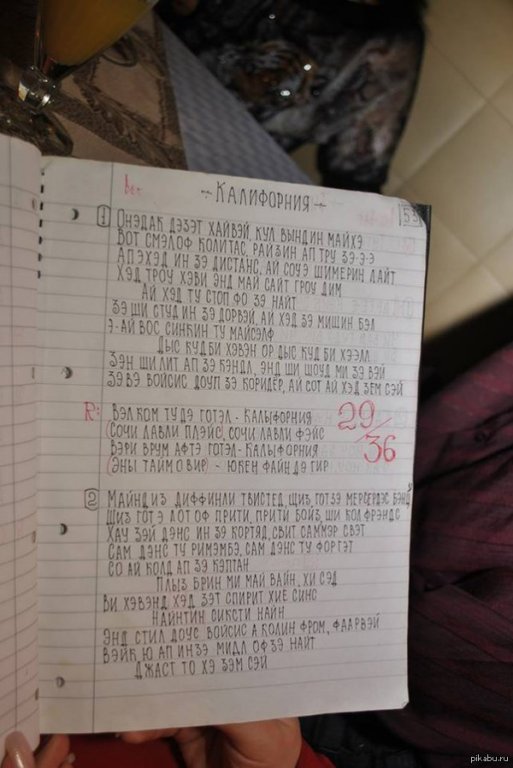 ÷ КАЛИФОРНИЯ ÷
53
1 ОНЭДАК ДЭЗЭТ ХАЙВЭЙ, КУЛ ВЫНДИН МАЙХЭ
ВОТ СМЭЛОФ КОЛИТАС, РАЙЗИН АП ТРУ ЗЭ-Э-Э
АПЭХЭД ИН ЗЭ ДИСТАНС, АЙ СОУЭ ШИМЕРИН ЛАЙТ
ХЭД ТРОУ ХЭВИ ЭНД МАЙ САЙТ ГРОУ ДИМ
АЙ ХЭД ТУ СТОП ФО ЗЭ НАЙТ
ЗЭ ШИ СТУД ИН ЗЭ ДОРВЭЙ, АЙ ХЭД ЗЭ МИШИН БЭЛ
Э-АЙ ВОС СИНКИН ТУ МАЙСЭЛФ
ДЫС КУД БИ ХЭВЭН ОР ДЫС КУД БИ ХЭЭЛЛ
ЗЭН ШИ ЛИТ АП ЗЭ КЭНДЛ, ЭНД ШИ ШОУД МИ ЗЭ ВЭЙ
ЗЭ ВЭ ВОЙСИС ДОУП ЗЭ КОРИДЁР, АЙ СОТ АЙ ХЭД ЗЕМ СЭЙ
R: ВЭЛКОМ ТУ ДЭ ГОТЭЛ - КАЛЫФОРНИЯ
(СОЧИ ЛАВЛИ ПЛЭЙС), СОЧИ ЛАВЛИ ФЭЙС
ВЭРИ ВРУМ АФТЭ ГОТЭЛ - КАЛЫФОРНИЯ
(ЭНЫ ТАЙМ О ВИР) - ЮКЕН ФАЙНД ДЭ ГИР
29/36
2 МАЙНД ИЗ ДИФФИНЛИ ТВИСТЕД, ЩИЗ ГОТ ЗЭ МЕРСЕРДЭС БЭНДЗ
ШИЗ ГОТ Э ЛОТ ОФ ПРИТИ, ПРИТИ БОЙЗ, ШИ КОЛ ФРЭНДС
ХАУ ЗЭЙ ДЭНС ИН ЗЭ КОРТЯД, СВИТ САММЭР СВЭТ
САМ ДЭНС ТУ РИМЭМБЭ, САМ ДЭНС ТУ ФОРГЭТ
СО АЙ КОЛД АП ЗЭ КЭПТАН
ПЛЫЗ БРИН МИ МАЙ ВАЙН, ХИ СЭД
ВИ ХЭВЭНД ХЭД ЗЭТ СПИРИТ ХИЕ СИНС
НАЙНТИН СИКСТИ НАЙН
ЭНД СТИЛ ДОУС ВОЙСИС А КОЛИН ФРОМ, ФААРВЭЙ
ВЭЙК, Ю АП ИН ЗЭ МИДЛ ОФ ЗЭ НАЙТ
ДЖАСТ ТО ХЭ ЗЭМ СЭЙ
pikabu.ru